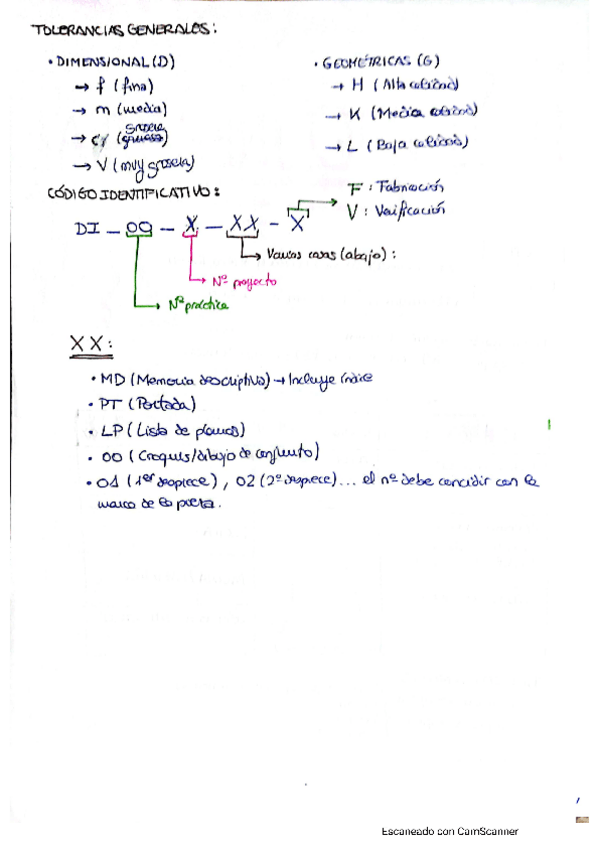 TOLERANCIAS GENERALES:
• DIMENSIONAL (D)
→ f (fina)
→ m (media)
→ c (grosera)
→ V (muy grosera)
• GEOMÉTRICAS (G)
→ H (Alta calidad)
→ K (Media calidad)
→ L (Baja calidad)
CÓDIGO IDENTIFICATIVO:
DI - 09 - X - XX - X
F: Fabricación
V: Verificación
→ Varios casos (abajo):
→ Nº proyecto
→ Nº práctica
XX:
• MD (Memoria descriptiva) → Incluye índice
• PT (Portada)
• LP (Lista de planos)
• 00 (Croquis/dibujo de conjunto)
• 01 (1er despiece), 02 (2º despiece)... el nº debe concidir con la
marca de la pieza.
Escaneado con CamScanner